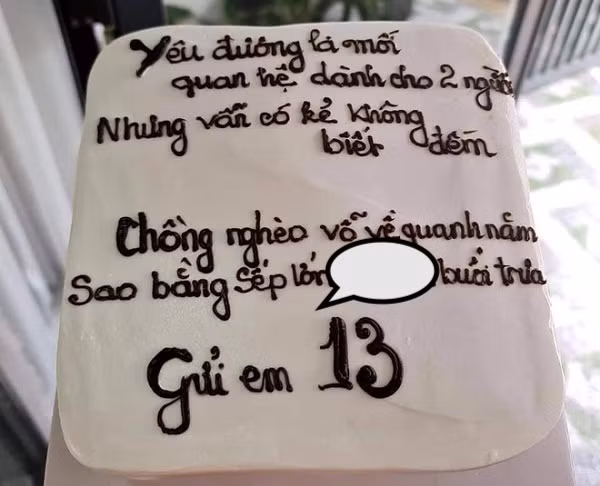 Yêu đương là mối
quan hệ dành cho 2 người
Nhưng vẫn có kẻ không
biết đếm
Chồng nghèo vỗ về quanh năm
Sao bằng sếp lớn buổi trưa
Gửi em 13